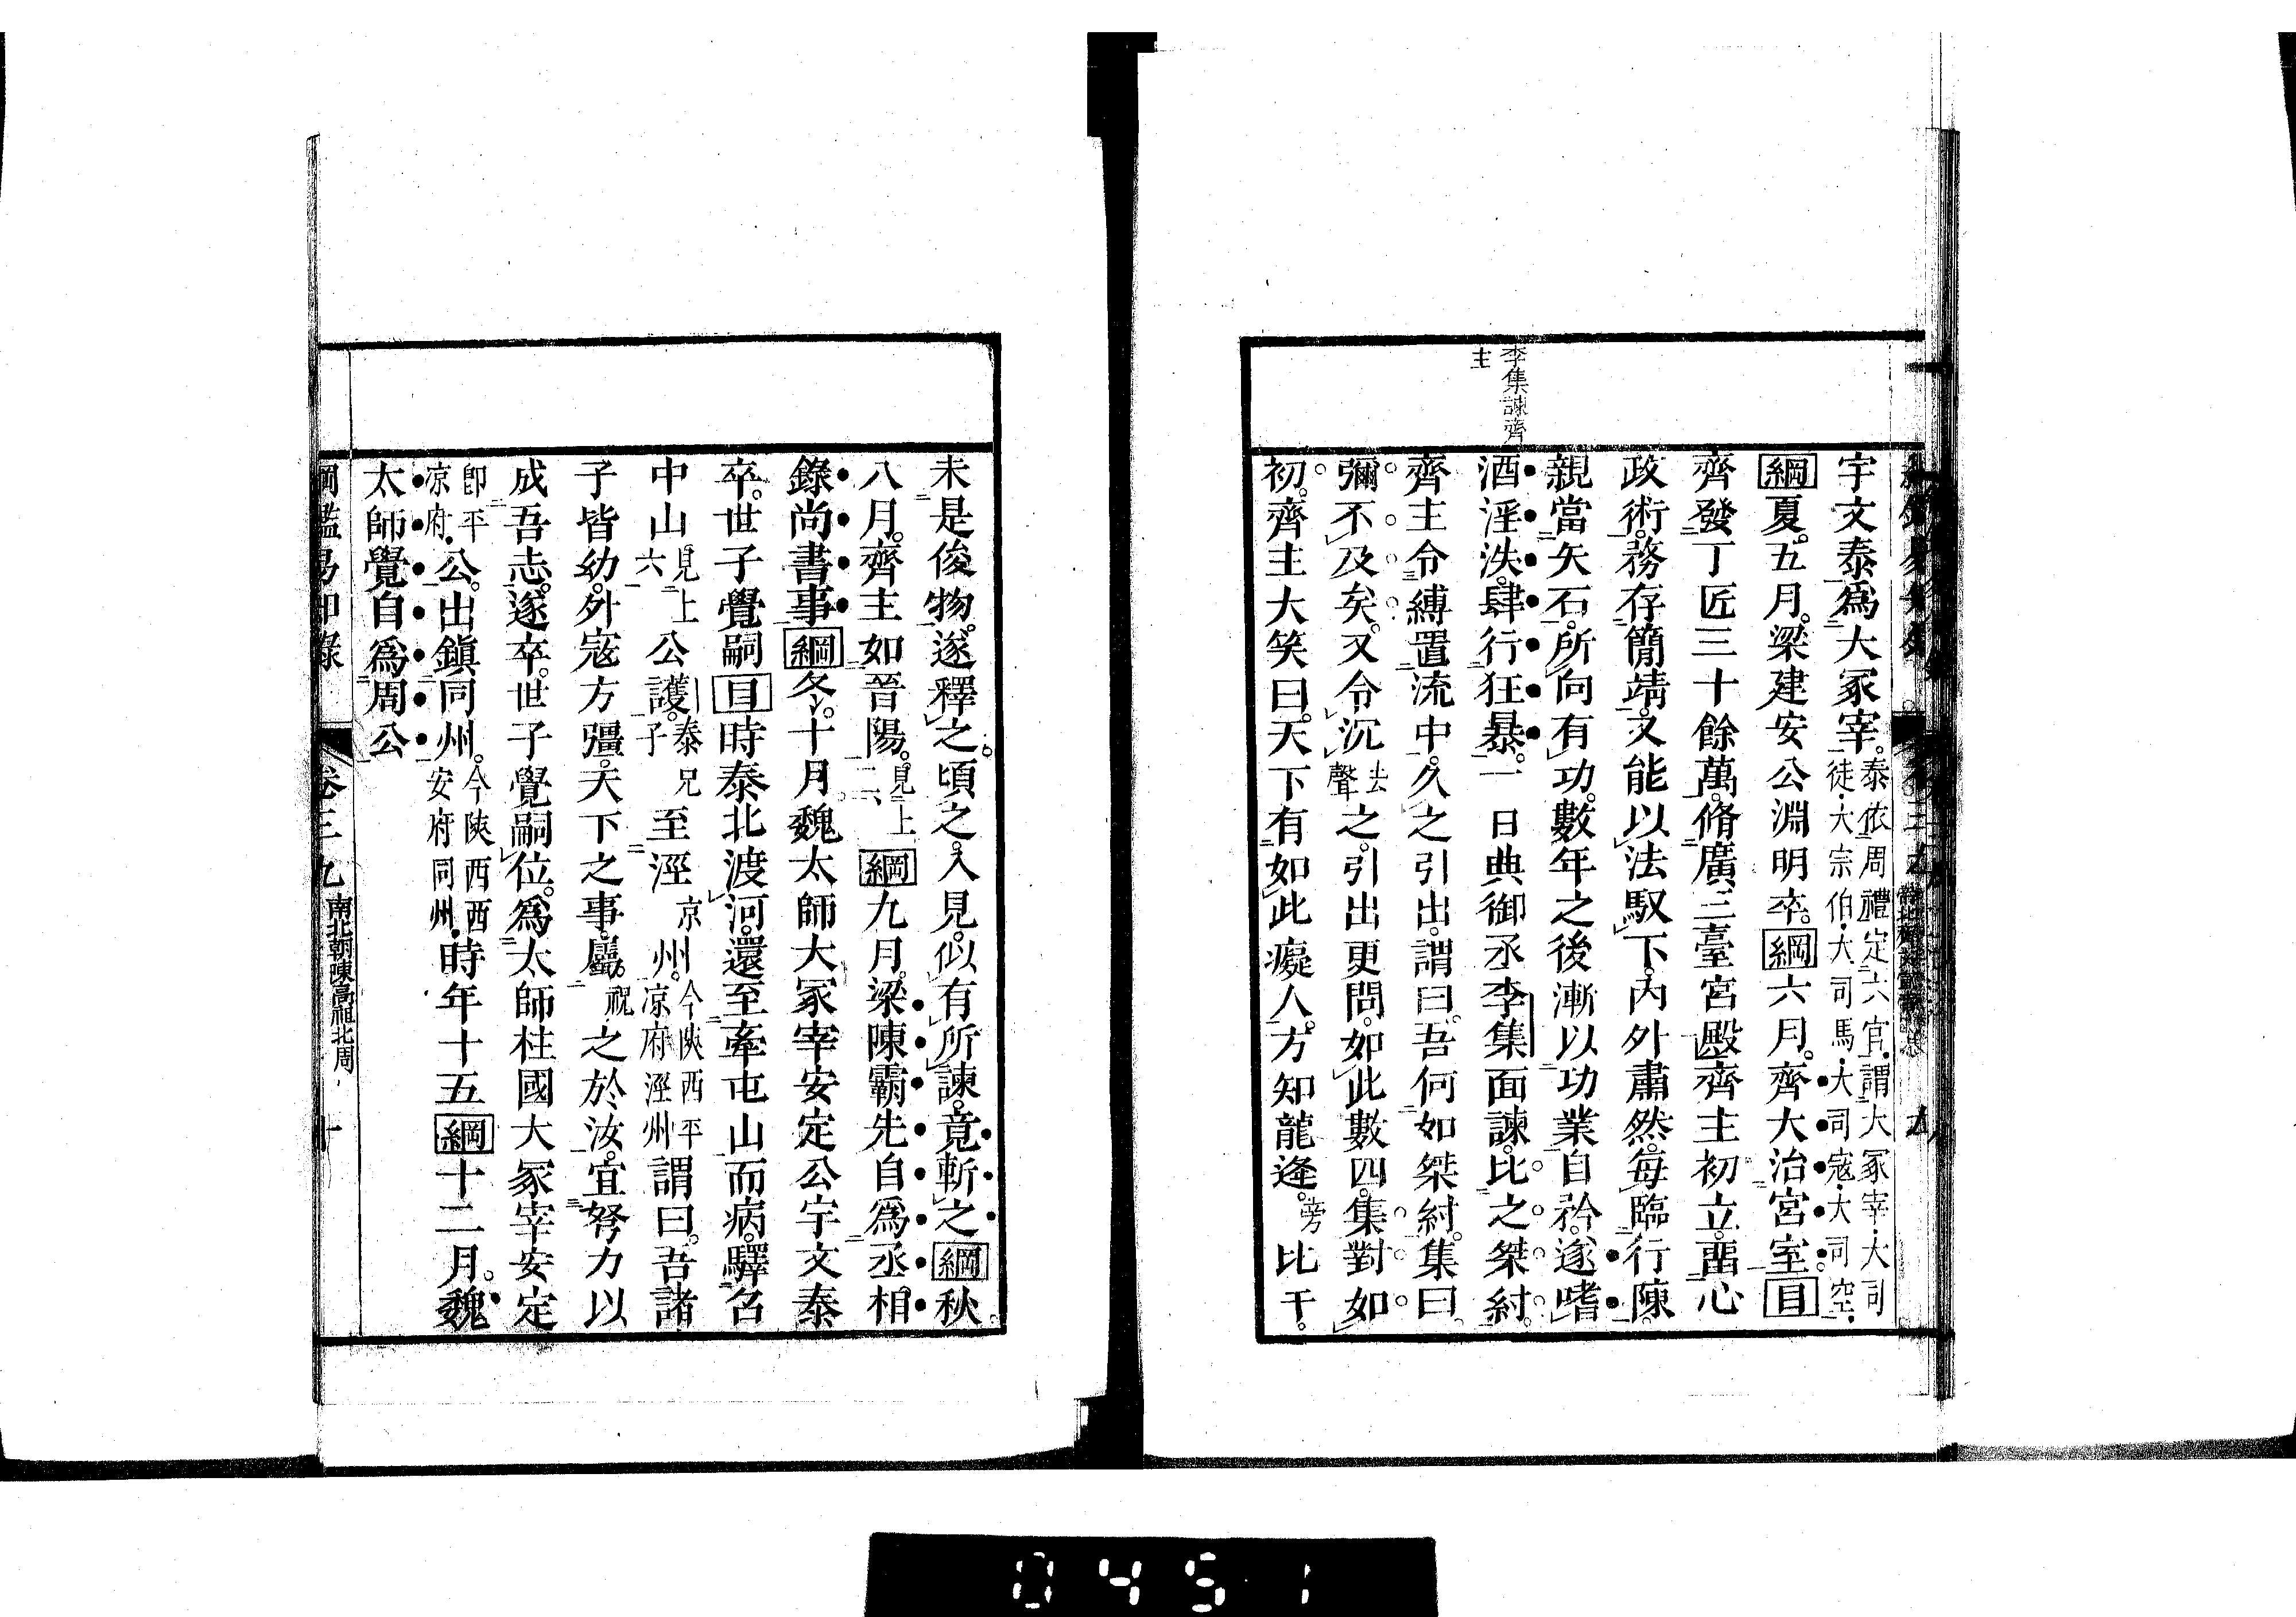 李集諫齊
主
宇文泰爲大冢宰。泰依周禮定六官。謂大冢宰・大司徒・大宗伯・大司馬・大司寇・大司空・
綱夏。五月。梁建安公淵明卒。綱六月。齊大治宮室。目
齊發丁匠三十餘萬。脩廣三臺宮殿。齊主初立。畱心
政術。務存簡靖。又能以法馭下。內外肅然。每臨行陳。
親當矢石。所向有功。數年之後漸以功業自矜。遂嗜
酒淫泆。肆行狂暴。一日典御丞李集面諫。比之桀紂。
齊主令縛置流中。久之引出。謂曰。吾何如桀紂。集曰。
彌不及矣。又令沉去聲之。引出更問。如此數四。集對如
初。齊主大笑曰。天下有如此癡人。方知龍逢。旁比干。
未是俊物。遂釋之。頃之。入見。似有所諫。竟斬之綱秋
八月。齊主如晉陽。見上二、綱九月。梁陳霸先自爲丞相
錄尚書事綱冬。十月。魏太師大冢宰安定公宇文泰
卒。世子覺嗣目時泰北渡河。還至牽屯山而病。驛召
中山見上六公護。泰兄子至涇京州。今陝西平凉府涇州謂曰。吾諸
子皆幼。外寇方彊。天下之事。屬。祝之於汝。宜努力以
成吾志。遂卒。世子覺嗣位。爲太師柱國大冢宰安定
卽平凉府・公。出鎭同州。今陝西西安府同州・時年十五綱十二月。魏
太師覺自爲周公
綱鑑易知錄 卷三九 南北朝陳高祖北周 十
0451